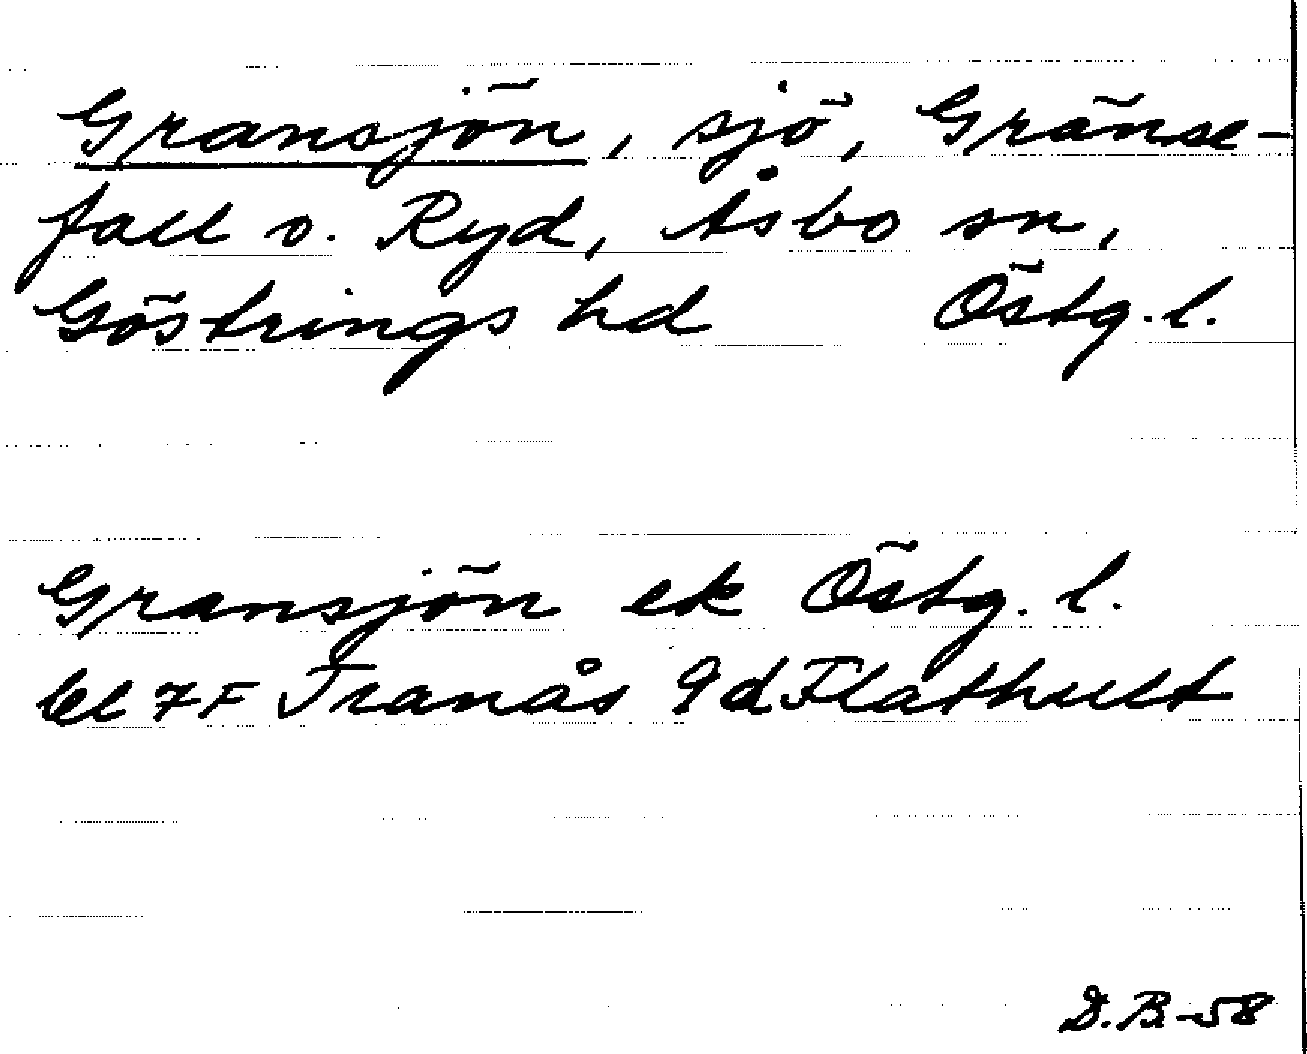 Gransjön, sjö, Gränse-
fall o. Ryd, Åsbo sn,
Göstrings hd Östg. l.
Gransjön ek Östg. l.
bl 7F Tranås 9d Flathult
D. B-58